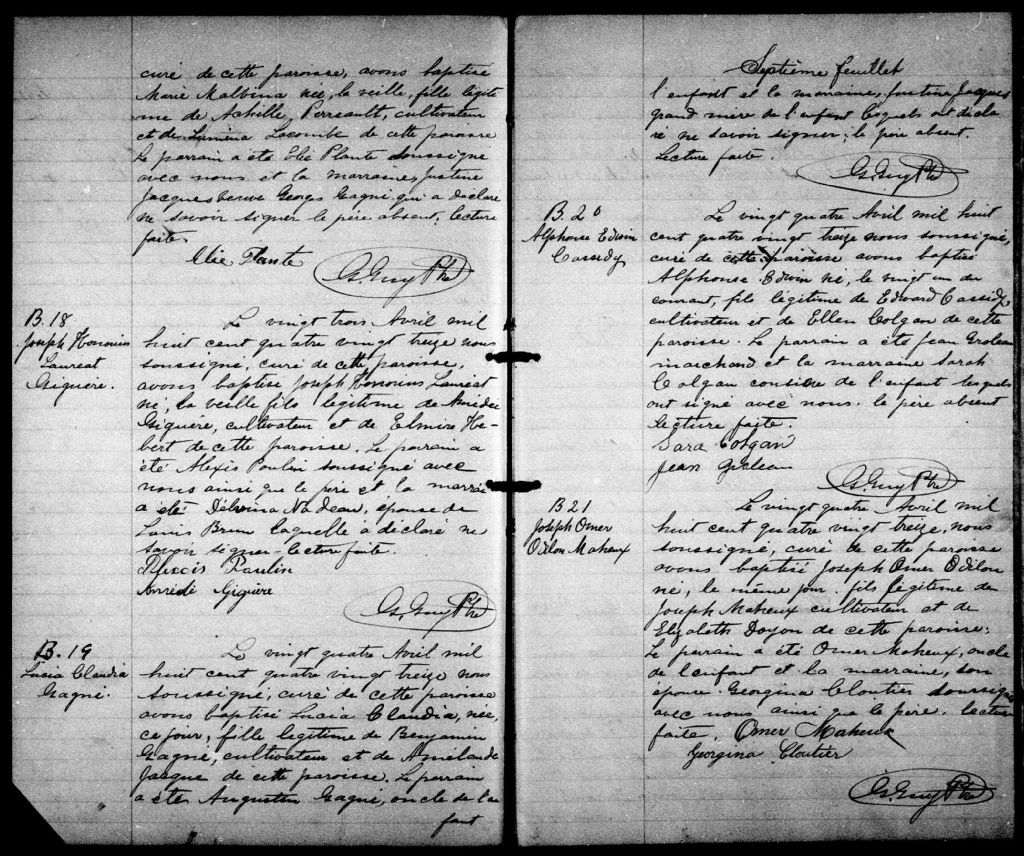 curé de cette paroisse, avons baptisé
Marie Malvina née, la veille, fille légiti
me de Achille Perreault, cultivateur
et de Luména Lacombe de cette paroisse
Le parrain a été Elie Plante soussigné
avec nous et la marraine, Justine
Jacques veuve Georges Gagné, qui a déclaré
ne savoir signer le père absent, lecture
faite.
Elie Plante
G. Guy Ptre
B. 18
Joseph Honorius
Lauréat
Giguère.
Le vingt trois Avril mil
huit cent quatre vingt treize nous
soussigné, curé de cette paroisse,
avons baptisé Joseph Honorius Lauréat
né, la veille fils légitime de Amédée
Giguère, cultivateur et de Elmire Hé-
bert de cette paroisse. Le parrain a
été Alexis Poulin soussigné avec
nous ainsi que le père et la marrai
a été Délvina Nadeau, épouse de
Louis Brun laquelle a déclaré ne
savoir signer - lecture faite.
Alexcis Paulin
Amédé Giguère
G. Guy Ptre
B. 19
Lucia Claudia
Gagné.
Le vingt quatre Avril mil
huit cent quatre vingt treize nous
soussigné, curé de cette paroisse
avons baptisé Lucia Claudia, née,
ce jour, fille légitime de Benjamin
Gagné, cultivateur et de
Jacque de cette paroisse. Le parrain
a été Augustin Gagné, oncle de l'en
fant
Septième feuillet
l'enfant et la marraine, Justine Jacques
grand mère de l'enfant lesquels ont décla
ré ne savoir signer; le père absent.
Lecture faite.
G. Guy Ptre
B. 20
Alphonse Edwin
Cassidy
Le vingt quatre Avril mil huit
cent quatre vingt treize nous soussigné,
curé de cette paroisse avons baptisé
Alphonse Edwin né, le vingt un du
courant, fils légitime de Edward Cassidy
cultivateur et de Ellen Colgan de cette
paroisse. Le parrain a été Jean Groleau
marchand et la marraine Sarah
Colgan cousine de l'enfant lesquels
ont signé avec nous. le père absent
Lecture faite.
Sara Colgan
Jean Groleau
G. Guy Ptre
B 21
Joseph Omer
Odilon Maheux
Le vingt quatre Avril mil
huit cent quatre vingt treize, nous
soussigné, curé de cette paroisse
avons baptisé Joseph Omer Odilon
né, le même jour. fils légitime de
Joseph Maheux cultivateur et de
Elizabeth Doyon de cette paroisse;
Le parrain a été Omer Maheux, oncle
de l'enfant et la marraine, son
épouse Georgina Cloutier soussignés
avec nous ainsi que le père. lecture
faite. Omer Maheux
Georgina Cloutier
G. Guy Ptre